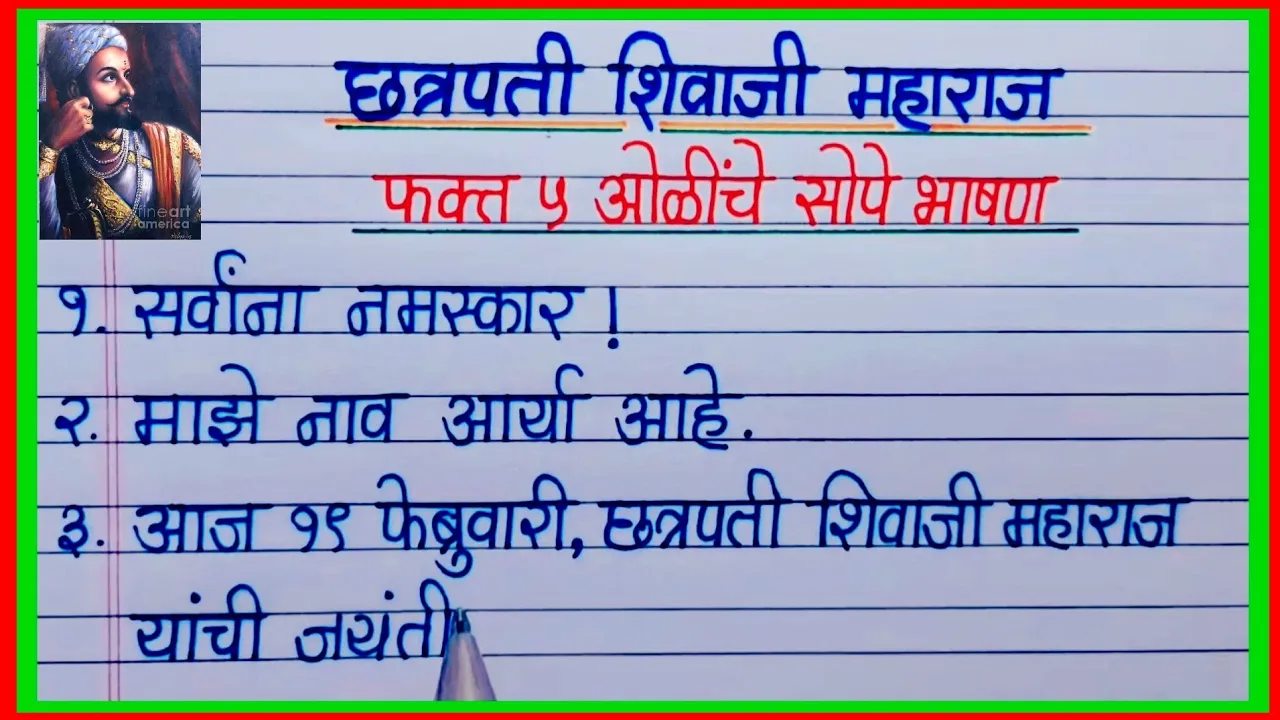 छत्रपती शिवाजी महाराज
फक्त ५ ओळींचे सोपे भाषण
१. सर्वांना नमस्कार !
२. माझे नाव आर्या आहे.
३. आज १९ फेब्रुवारी, छत्रपती शिवाजी महाराज
यांची जयंती
fineart
america